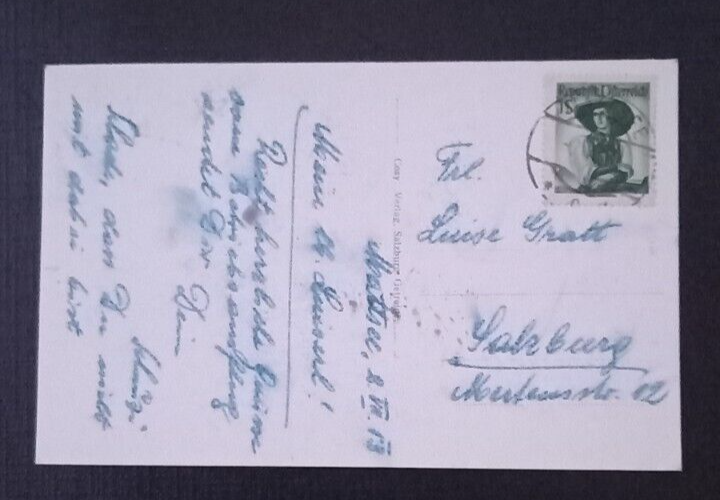 Mattsee, 2. VII. 53
Mein lb. Luiserl!
Recht herzliche Grüsse
vom Betriebsausflug
sendet Dir
Dein
Schade, dass Du nicht
mit dabei bist
Cosy Verlag, Salzburg
Republik Österreich
1S
Frl.
Luise Gratt
Salzburg
12